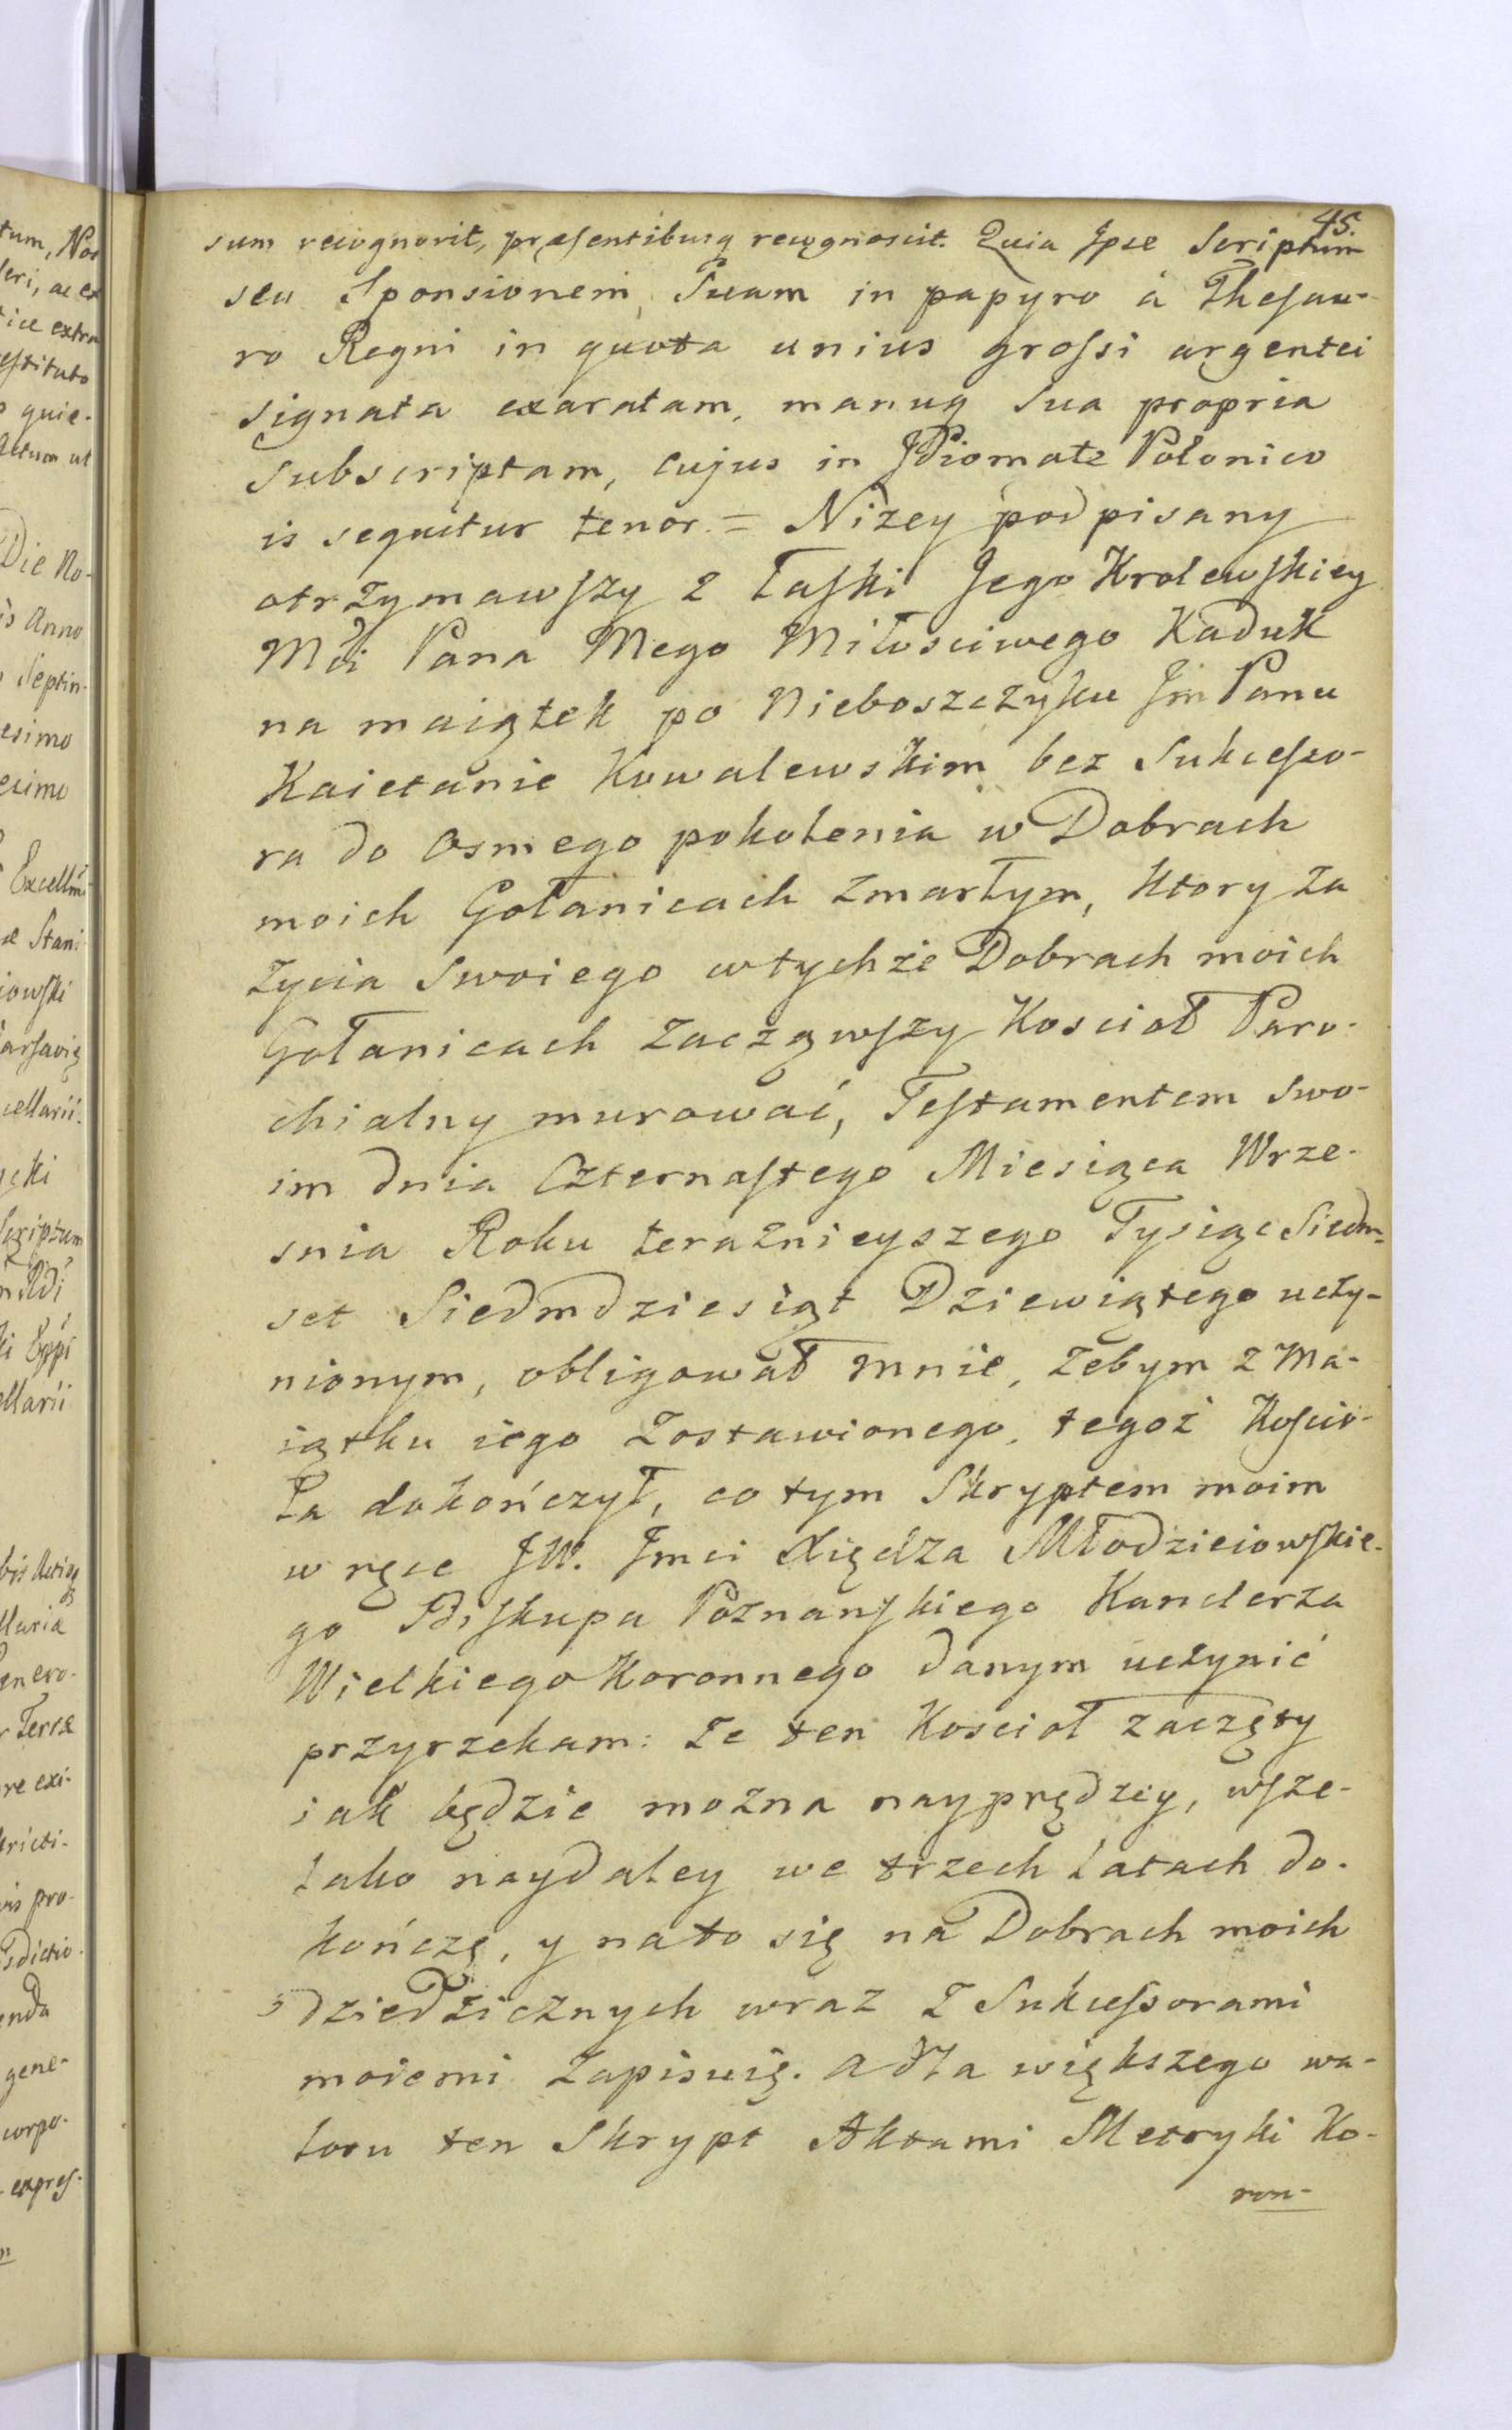 45.
sum recognovit, præsentibusq recognoscit. Quia Ipse Scriptum
seu Sponsionem Suam in papyro á Thesau-
ro Regni in quota unius grossi argentei
signata exaratam, manuq sua propria
subscriptam, cujus in Idiomate Polonico
is sequitur tenor. = Nizey podpisany
otrzymawszy z Łaski Jego Krolewskiey
Mći Pana Mego Miłosciwego Kaduk
na maiątek po Nieboszczyku Jm Panu
Kaietanie Kowalewskim bez Sukcesso-
ra do Osmego pokolenia w Dobrach
moich Gołanicach zmarłym, ktory za
życia swoiego wtychże Dobrach moich
Gołanicach zacząwszy Kosciół Paro-
chialny murować, Testamentem swo-
im dnia Czternastego Miesiąca Wrze-
snia Roku teraznieyszego Tysiąc Siedm-
set Siedmdziesiąt Dziewiątego uczy-
nionym, obligował mnie, żebym z Ma-
iątku iego zostawionego, tegoż Kościo-
ła dokończył, co tym Skryptem moim
w ręce JW. Jmci Xiędza Młodzieiowskie-
go Biskupa Poznanskiego Kanclerza
Wielkiego Koronnego danym uczynić
przyrzekam: że ten Kosciół zaczęty
iak będzie można nayprędzey, wsze-
lako naydaley we trzech latach do-
kończę, y nato się na Dobrach moich
dziedzicznych wraz z Sukcessorami
moiemi zapisuię. a dla większego wa-
loru ten Skrypt Aktami Metryki Ko-
ron-
tum, Nos
ice extra
estituto
quie-
Die No-
is Anno
Septin-
esimo
esimo
Excellm̃i
Stani
iowski
cellarii.
Scriptum
ellarii
Terræ
re exi-
pro-
enda
gene-
corpo-
expres-